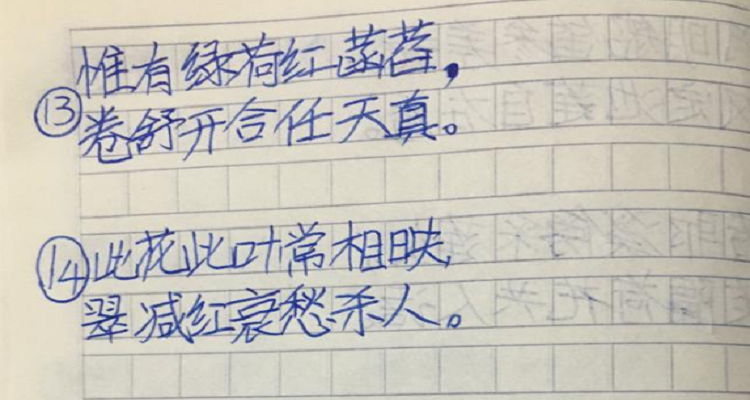 惟有绿荷红菡萏，
⑬卷舒开合任天真。
⑭此花此叶常相映，
翠减红衰愁杀人。